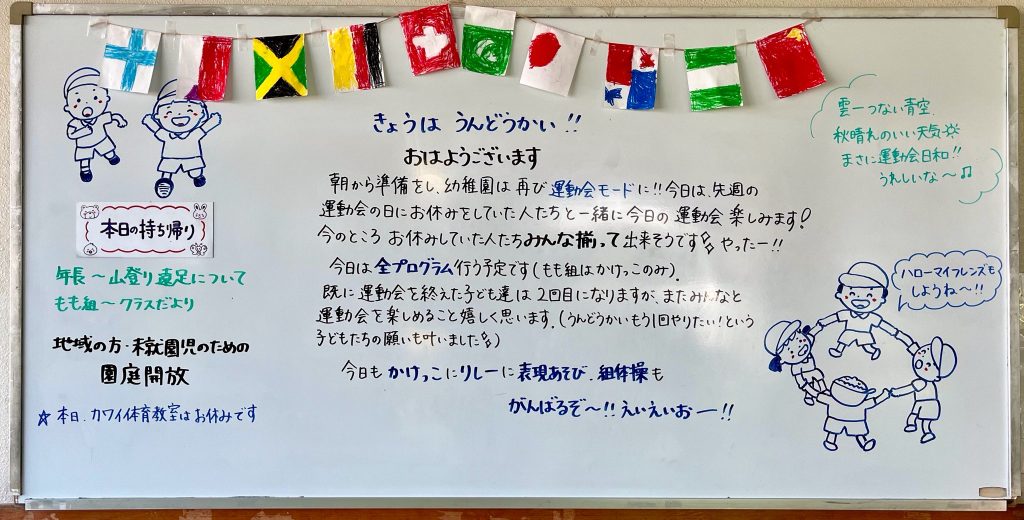 きょうは うんどうかい!!
おはようございます
朝から準備をし、幼稚園は再び運動会モードに!!今日は、先週の
運動会の日にお休みをしていた人たちと一緒に今日の運動会楽しみます!
今のところ お休みしていた人たちみんな揃って出来そうです やったー!!
今日は全プログラム行う予定です(もも組はかけっこのみ).
既に運動会を終えた子ども達は2回目になりますが、またみんなと
運動会を楽しめること嬉しく思います.(うんどうかいもう1回やりたい!という
子どもたちの願いも叶いました)
今日も かけっこにリレーに表現あそび、組体操も
がんばるぞ〜!!えいえいおー!!
本日の持ち帰り
年長〜山登り遠足について
もも組〜クラスだより
地域の方・未就園児のための
園庭開放
☆本日、カワイ体育教室はお休みです
雲一つない青空
秋晴れのいい天気☼
まさに運動会日和!!
うれしいな〜♫
ハローマイフレンズも
しようね〜!!